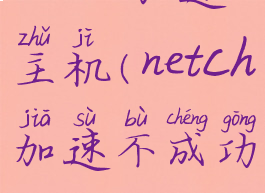 zhǔ jī
主机(netch
jiā sù bù chéng gōng
加速不成功